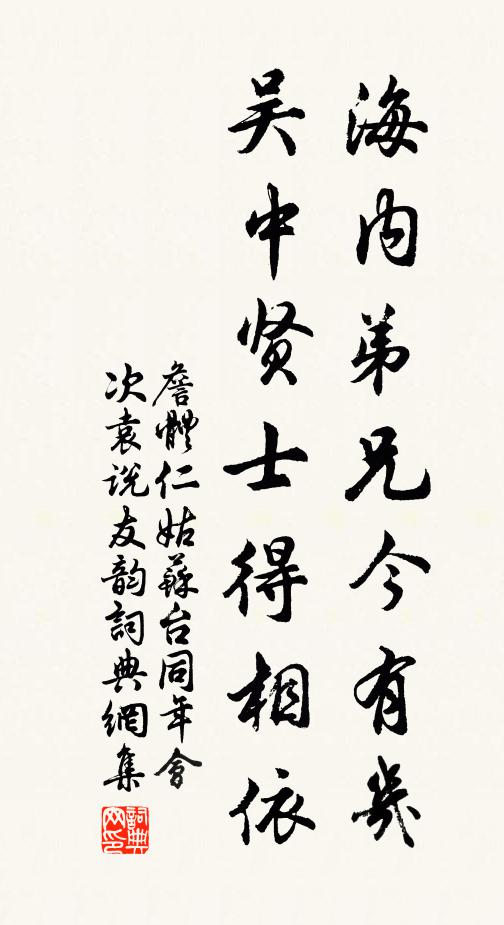 海内弟兄今有幾
吴中贤士得相依
詹體仁姑蘇台同年會
次袁说友韵詞典網集
詞典网印